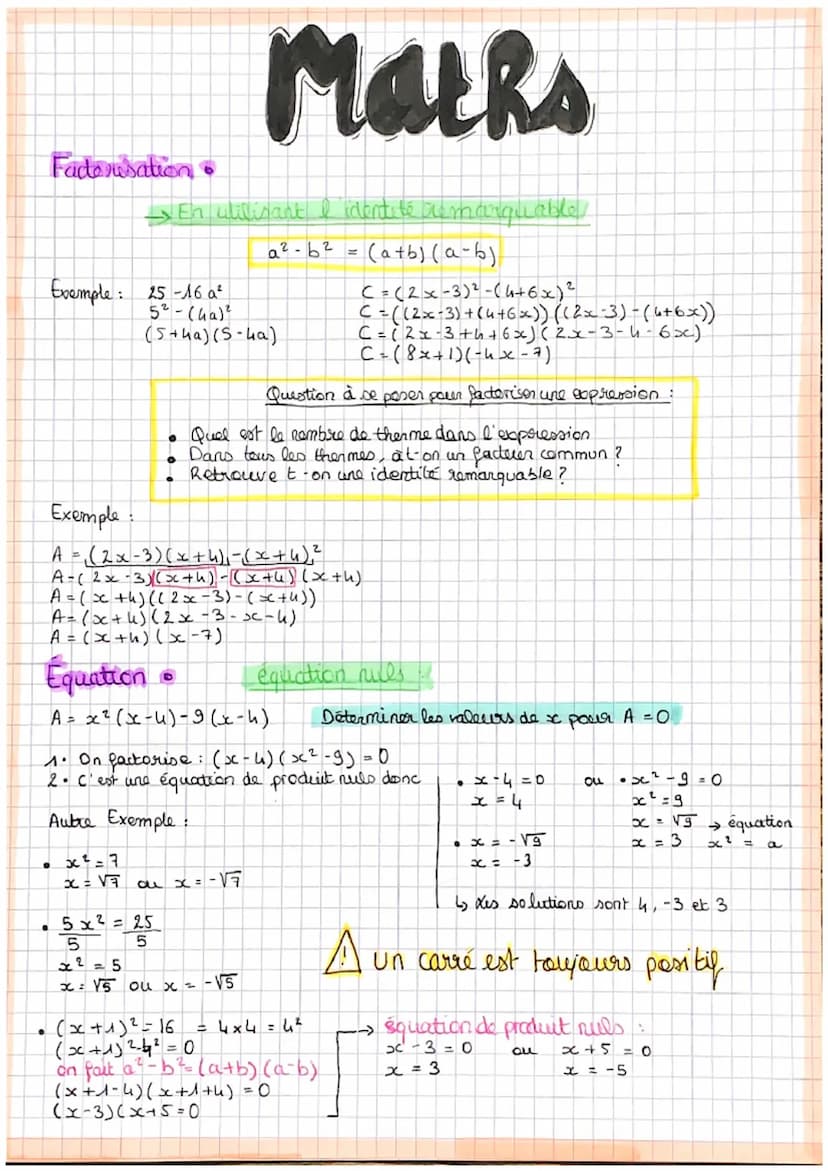 Maths
Factorisation •
→ En utilisant l'identité remarquable
a² - b² = (a+b)(a-b)
Exemple : 25 - 16 a²
5² - (4a)²
(5+4a)(5-4a)
C = (2x-3)² - (4+6x)²
C = ((2x-3)+(4+6x))((2x-3)-(4+6x))
C = (2x-3+4+6x)(2x-3-4-6x)
C = (8x+1)(-4x-7)
Question à se poser pour factoriser une expression :
• Quel est le nombre de therme dans l'expression
• Dans tous les thermes, at-on un facteur commun ?
• Retrouve t-on une identité remarquable ?
Exemple :
A = (2x-3)(x+4)-(x+4)²
A=(2x-3)(x+4)-(x+4)(x+4)
A=(x+4)((2x-3)-(x+4))
A=(x+4)(2x-3-x-4)
A=(x+4)(x-7)
Équation •
équation nuls :
A = x²(x-4)-9(x-4)
Déterminer les valeurs de x pour A = 0
1. On factorise : (x-4)(x²-9) = 0
2. C'est une équation de produit nuls donc
• x-4=0 ou • x²-9=0
x = 4 x²=9
x = √9 → équation
x = 3 x² = a
• x = -√9
x = -3
↳ Les solutions sont 4, -3 et 3
Autre Exemple :
• x² = 7
x = √7 ou x = -√7
• 5x² = 25
5 5
x² = 5
x = √5 ou x = -√5
⚠ un carré est toujours positif
• (x+1)² = 16 = 4x4 = 4²
(x+1)²-4² = 0
on fait a²-b²=(a+b)(a-b)
(x+1-4)(x+1+4) = 0
(x-3)(x+5=0
→ équation de produit nuls :
x-3=0 ou x+5=0
x = 3 x = -5